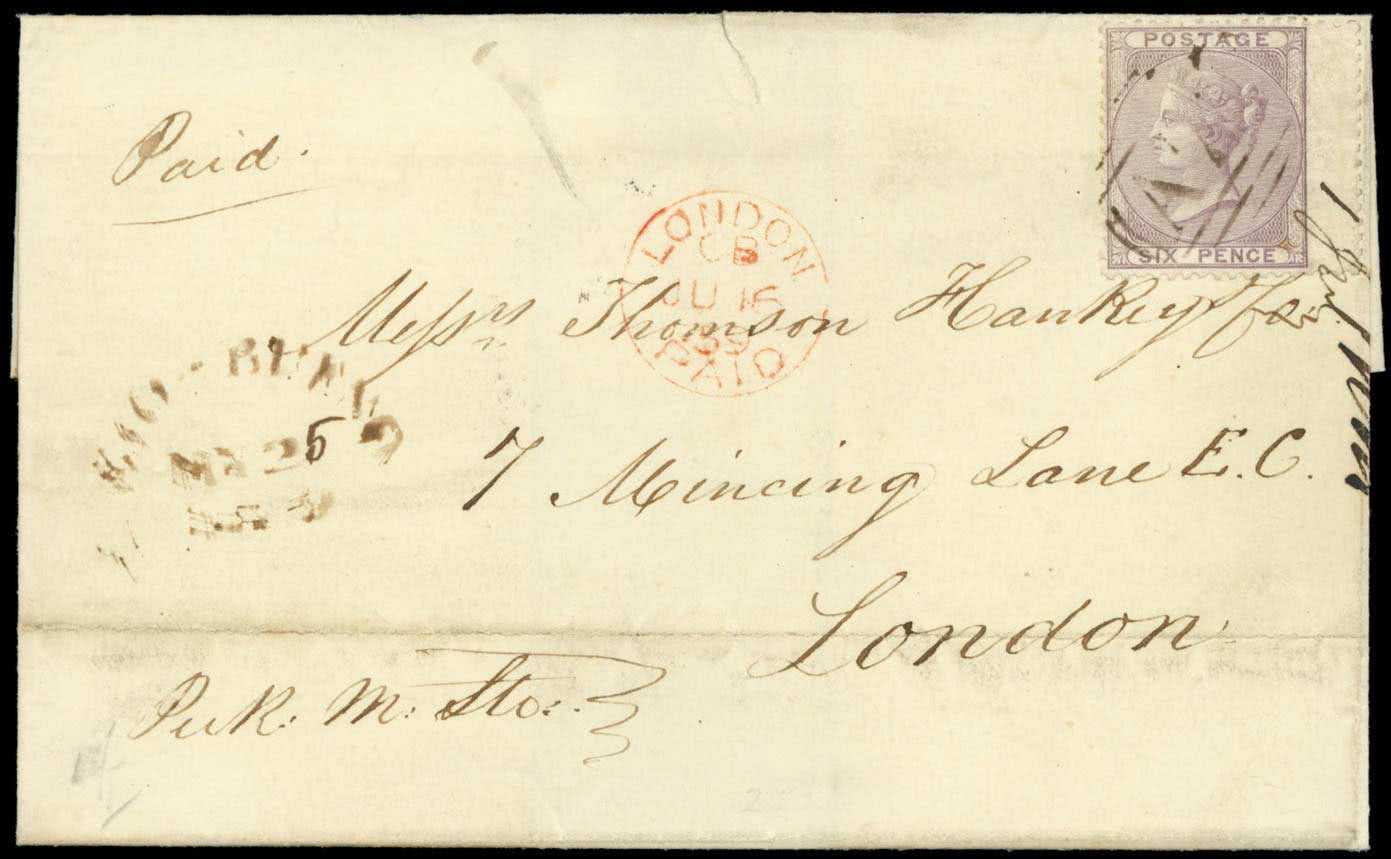 POSTAGE
SIX PENCE
Paid.
LONDON
CB
JU 16
59
PAID
Messrs. Thomson Hankey & Co
5
7 Mincing Lane E.C.
London
Per R. M. Str.